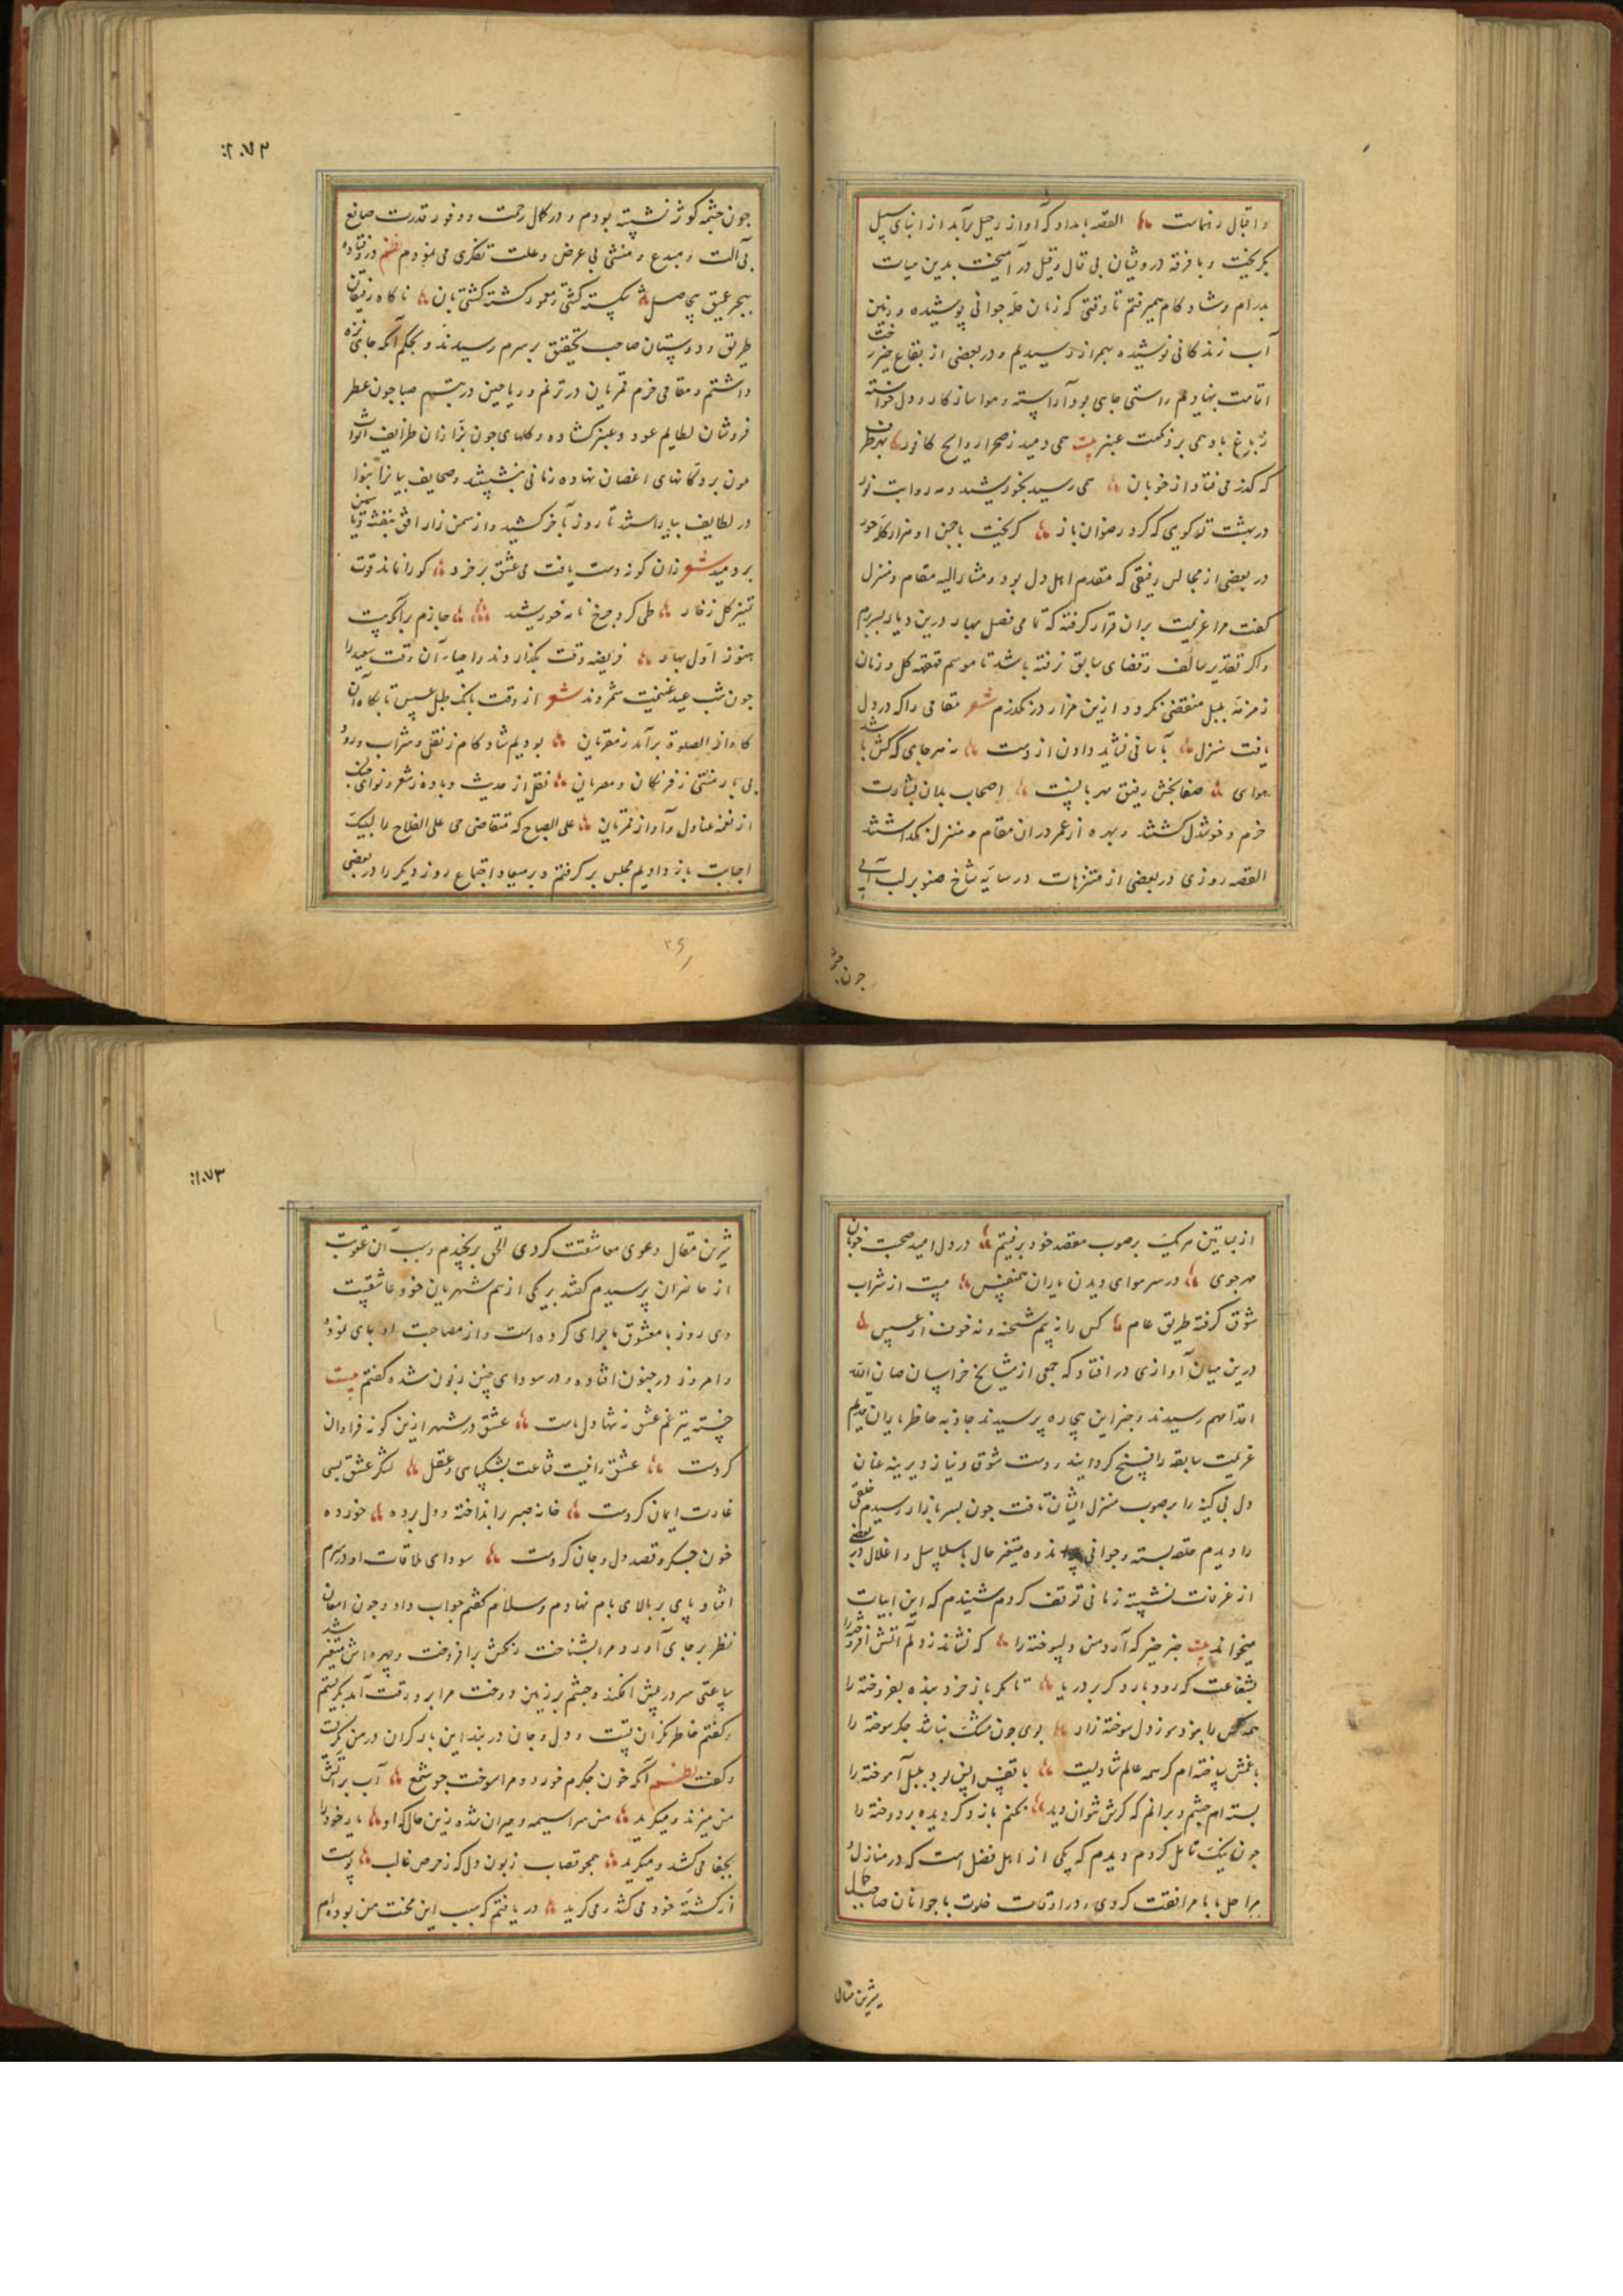 و اقبال رهنماست القصه بامداد که آواز رحیل برآمد از ابنای سبیل
بگریخت و با فرقه درویشان بی قال و قیل در آمیخت بدین سیات
بدرام و شاد کام میرفتم تا وقتی که زمان حله جوانی پوشیده و زمین
آب زندکانی نوشیده بهراز رسیدیم و در بعضی از بقاع رخت
اقامت بنهادیم راستی جای بود آراسته و هوا ساز کار و دل خواسته
ز باغ باد همی برد نکهت عنبر بیت همی دمید ز صحرا روایح کافور بهر طرف
که کذر می فتاد از خوبان همی رسید بخورشید و مه روایت نور
در بهشت تو کویی که کرد رضوان باز کریخت با چمن او هزار کله حور
در بعضی از مجالس رفیقی که مقدم اهل دل بود و مشار الیه مقام و منزل
کفت مرا عزیمت بران قرار کرفته که تمامی فصل بهار درین دیار بسر برم
و اکر تقدیر سالف و قضای سابق نرفته باشد تا موسم قهقهه کل و زمان
زمزمه بلبل منقضی نکردد ازین مزار در نکذرم شعر مقامی را که در دل
یافت منزل بآسانی نشاید دادن از دست نه هر جای که کش باشد
هوای صفابخش رفیق مهربانیست اصحاب بدان بشارت
خرم و خوشدل کشتند و بهره از عمر در ان مقام و منزل بکذاشتند
القصه روزی در بعضی از متنزهات در سایه شاخ صنوبر لب آبی
چون
۲۰۷۲
چون چشمه کوثر نشسته بودم و در کمال رحمت و وفور قدرت صانع
بی آلت و مبدع و منشی بی عرض و علت تفکری می نمودم نظم در فتاده
ببحر عمیق بیحاصل شکسته کشتی و مقهور کشته کشتی بان ناکاه رفیقان
طریق و دوستان صاحب تحقیق بر سرم رسیدند و بحکم آنکه جای نزه
داشتم و مقامی خرم قمریان در ترنم و ریاحین در تبسم صبا چون عطر
فروشان لطایم عود و عنبر کشاده و کلهای چون بزازان طرایف اثواب
ملون بر دکانهای اغصان نهاده زمانی بنشستند و صحایف بیابزا بنوا
در لطایف بیاراستند تا روز بآخر کشید و از سمن زار افق بنفشه
بر دمید شعر زان کونه دست یافت می عشق بر خرد کو را نماند قوت
تمییز کل ز خار طی کرد چرخ نامه خورشید جازم برآنکه نیست
هنوز اول بهار فریضه وقت بکذاردند و احیاء آن وقت سعید را
چون شب عید غنیمت شمردند شعر از وقت بانک طبل عسس تا بکاه آن
کاواز الصلوة برآمد ز مقریان بودیم شاد کام ز نقل و شراب و رود
بی بار منتی ز فرنکان و مصریان نقل از حدیث و باده ز شعر و نوای
از نغمه عنادل و آواز قمریان علی الصباح که متقاضی حی علی الفلاح را لبیک
اجابت باز دادیم مجلس بر کرفتم و بر میعاد اجتماع روز دیکر را در بعضی
از بساتین هر یک بر صوب مقصد خود برفتیم در دل امید صحبت خوبان
مهر جوی در سر هوای دیدن یاران همنفس مست از شراب
شوق کرفته طریق عام کس را نه بیم شحنه و نه خوف از عسس
درین میان آوازی در افتاد که جمعی از مشایخ خراسان صان الله
اقدامهم رسیدند و خبر این بیچاره پرسیدند جاذبه خاطر یاران قدیم
عزیمت سابقه را فسخ کردانید و دست شوق و نیاز دیرینه عنان
دل بی کینه را بر صوب منزل ایشان تافت چون بسر بازار رسیدم خلقی
را دیدم حلقه بسته و جوانی متغیر حال با سلاسل و اغلال در بعضی
از غرفات نشسته زمانی توقف کردم شنیدم که این ابیات
میخواند بیت جز خبر که آرد من دلسوخته را که نشاند ز دلم آتش افروخته را
بشفاعت که رود بار دکر بر در یار تا مکر باز خرد بنده بفروخته را
همه کس را بود سوز دل سوخته زار بوی چون مشک نباشد جکر سوخته را
با غمش ساخته ام کر همه عالم شادیست با قفس انس بود بلبل آموخته را
بسته ام چشم و بر انم که کرش توان دید نکنم باز دکر دیده بر دوخته را
چون نیک تأمل کردم دیدم که یکی از اهل فضل است که در منازل و
مراحل با ما مرافقت کردی و در اوقات خلوت با جوانان صاحب
شیرین مقال
۱۰۷۳
شیرین مقال دعوی معاشقت کردی الحق برنجیدم و سبب آن عقوبت
از حاضران پرسیدم کفتند بر یکی از هم شهریان خود عاشقست
دی روز با معشوق ماجرای کرده است و از مصاحبت او بای نموده
و امروز در جنون افتاده و در سودای چنین زبون شده کفتم بیت
خسته تیر غم عشق نه تنها دل ماست عشق در شهر ازین کونه فراوان
کردست عشق را نیست قناعت بشکیبایی و عقل لشکر عشق بسی
غارت ایمان کردست خانه صبر را نداخته و دل برده خورده
خون جسکر و قصد دل و جان کردست سودای ملاقات او در سرم
افتاد پای بر بالای بام نهادم و سلام کفتم جواب داد و چون امعان
نظر بر جای آورد مرا بشناخت رنکش برافروخت و چهره اش متغیر شد
ساعتی سر در پیش افکند و چشم بر زمین دوخت مرا بر و رقت آمد بکریستم
و کفتم خاطر نکران تست و دل و جان در بند این بار کران در من نکریست
و کفت نظم آنکه خون جکرم خورد و مرا سوخت چو شمع آب بر آتش
من میزند و میکرید من سراسیمه و حیران شده زین حال که او یار خود را
بجفا می کشد و میکرید همچو قصاب زبون دل که ز حرص غالب پوست
از کشته خود می کشد و می کرید در یافتم که سبب این محنت من بوده ام